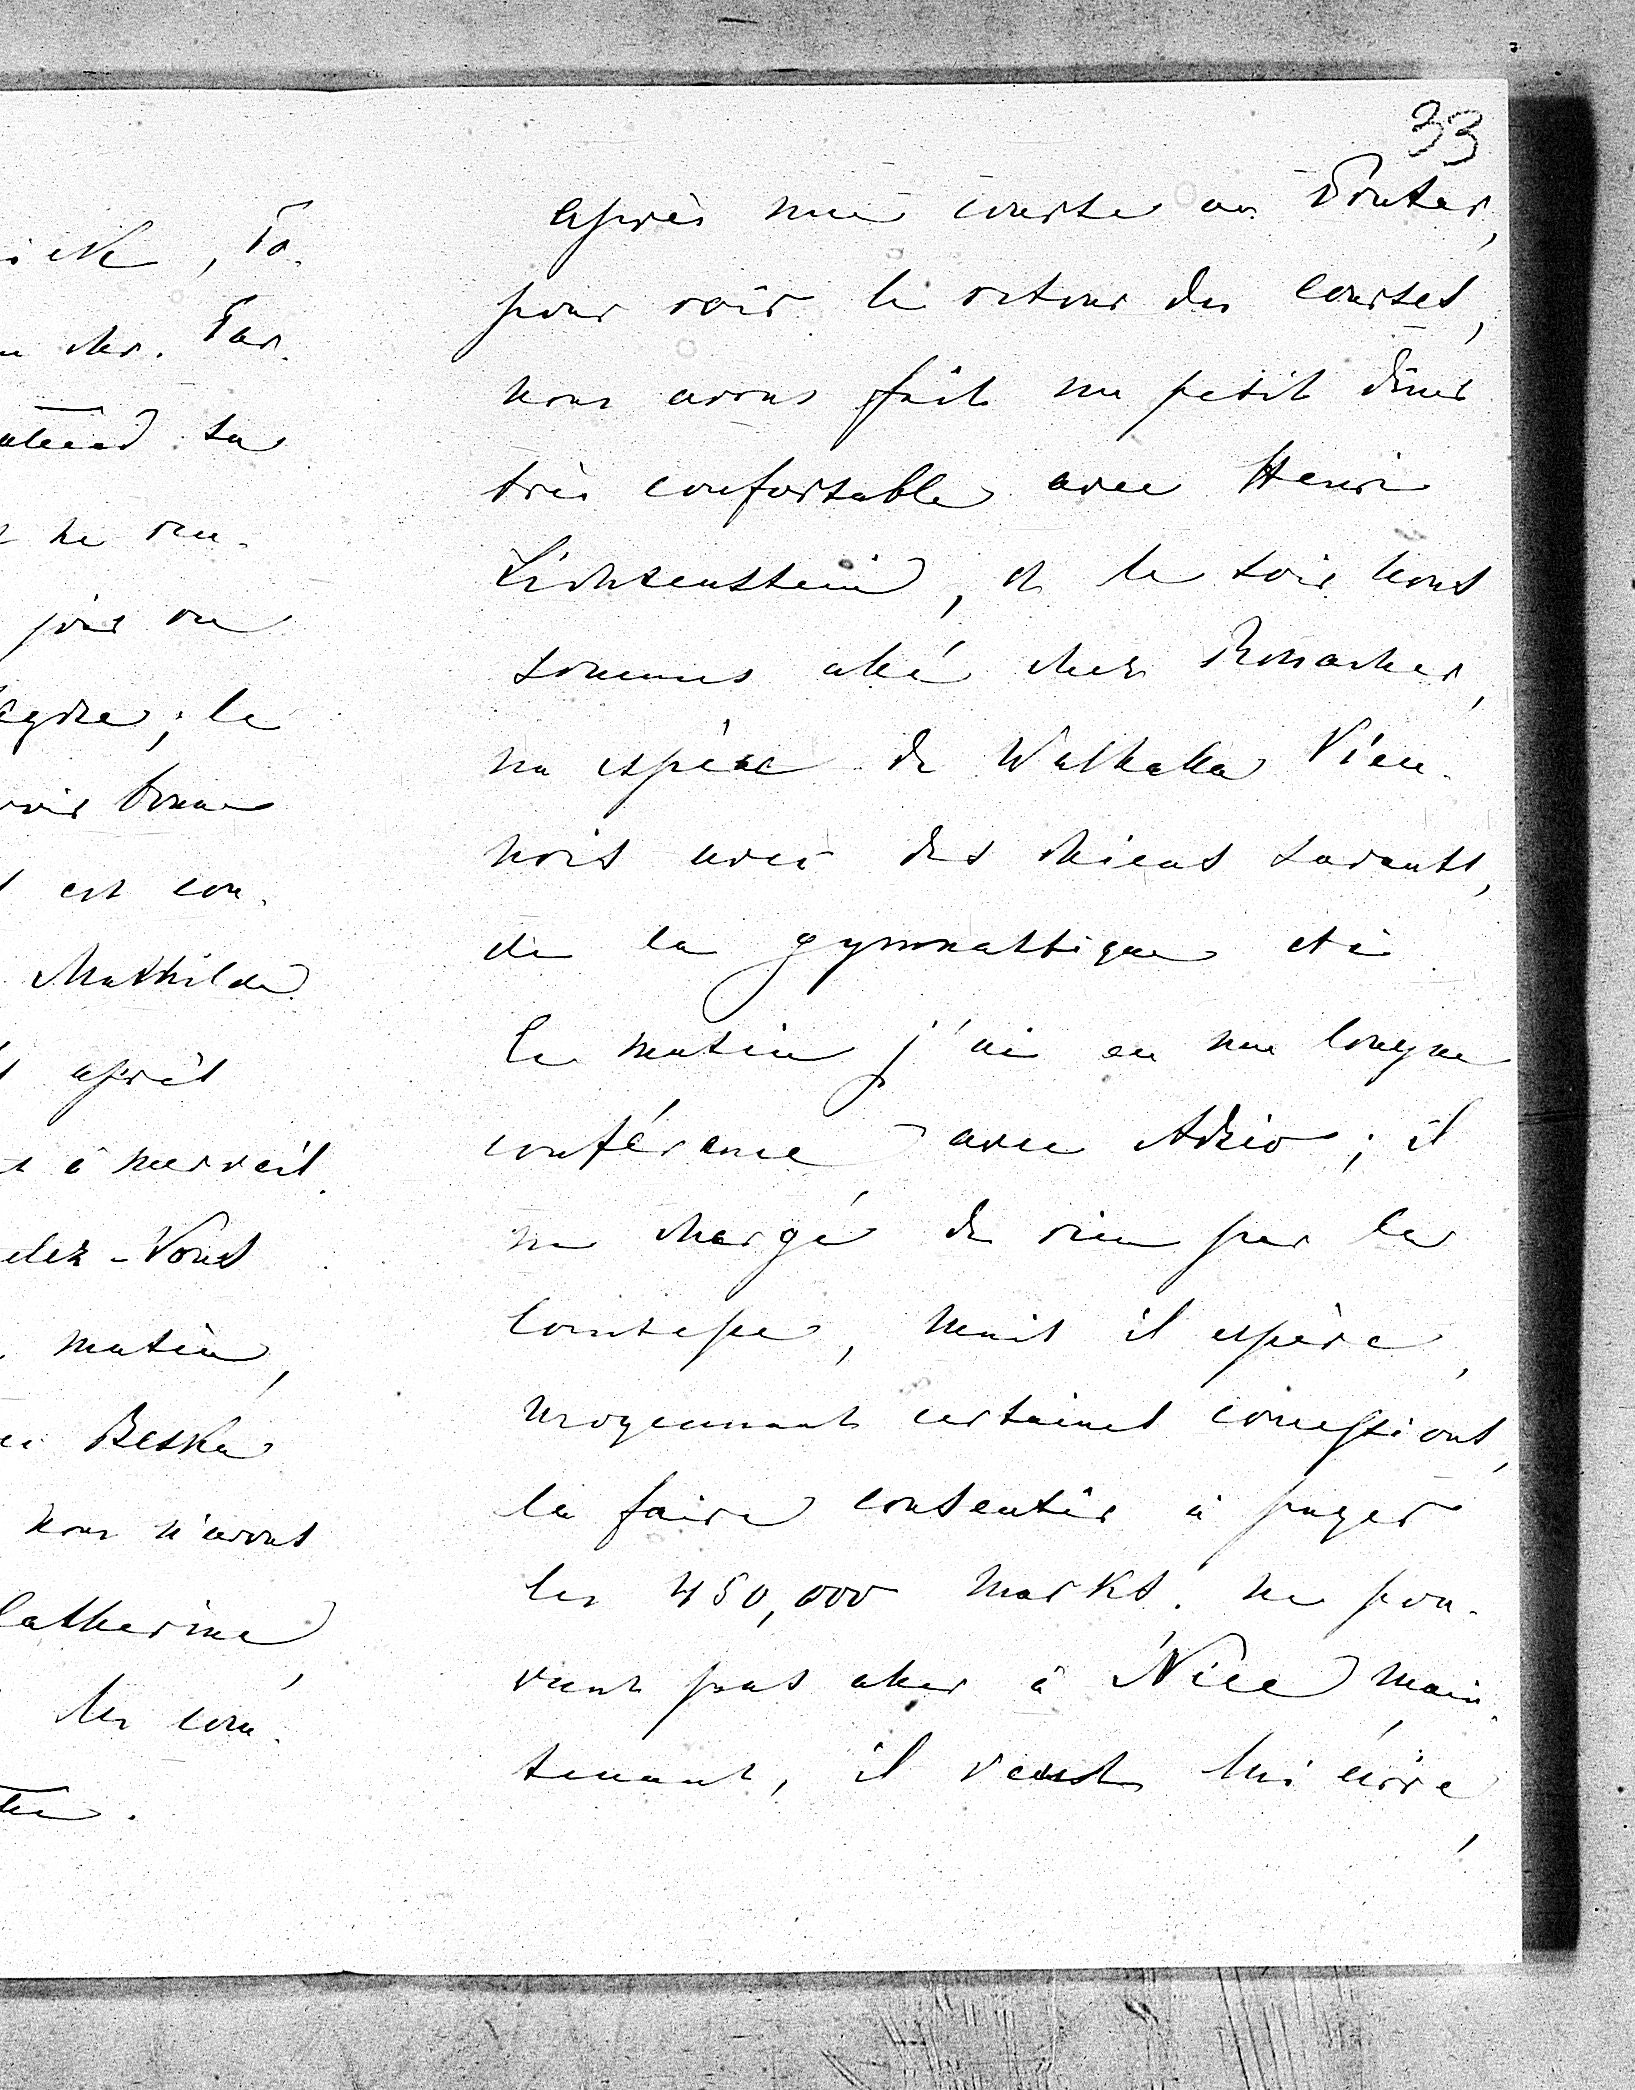 33
ick, To-
Mr. Tar-
attend sa
ne ren-
jour on
; le
bonne
est con-
Mathilde
après
à merveil-
dez-Vous
matin,
Beska
nous n'avons
Catherine,
les com-
Après une course au Prater,
pour voir le retour des courses,
nous avons fait un petit dîner
très confortable avec Henri
Lichtenstein, et le soir nous
sommes allé chez Ronacher,
un espèce de Walhalla Vien-
nois avec des chiens savants,
de la gymnastique etc.
Le matin j'ai eu une longue
conférence avec Adzio; il
ne chargé de rien par la
Comtesse, mais il espère,
moyennant certaines concessions,
la faire consentir à payer
les 450,000 Marks. Ne pou-
vant pas aller à Nice main-
tenant, il veut lui écrire,